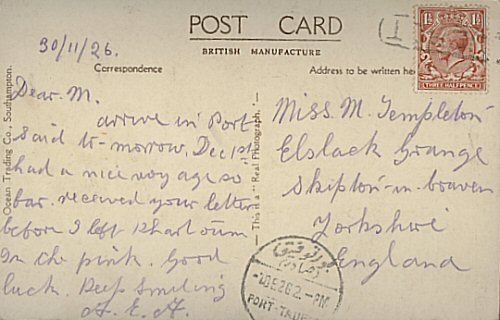 POST CARD
BRITISH MANUFACTURE
30/11/26.
Correspondence
Address to be written he
Dear. M.
arrive in Port
Said to-morrow, Dec 1st
had a nice voyage so
far. received your letter
before I left Khartoum.
In the pink. Good
luck. Keep smiling
A. E. H.
Miss. M. Templeton
Elslack Grange
Skipton-in-Craven
Yorkshire
England
Ocean Trading Co., Southampton.
This is a "Real Photograph."
1½ 1½
THREE HALFPENCE
PORT-TAUF